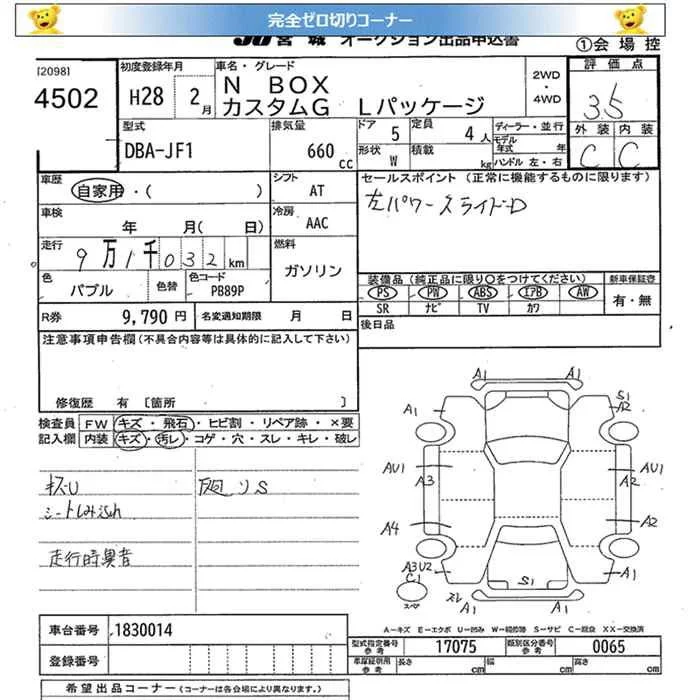 完全ゼロ切りコーナー
JU 宮城 オークション出品申込書
①会場控
[2098]
4502
初度登録年月
H28 2月
車名・グレード
N BOX
カスタムG Lパッケージ
2WD
・
4WD
評価点
3.5
外装 内装
C C
型式
DBA-JF1
排気量
660 cc
ドア 5
定員 4人
形状 W
積載 kg
ディーラー・並行
モデル年式 年
ハンドル 左・右
車歴
自家用・( )
シフト
AT
車検
年 月( 日)
冷房
AAC
走行
9万1千032km
燃料
ガソリン
色
パブル
色替
色コード
PB89P
R券 9,790円
名変通知期限 月 日
セールスポイント (正常に機能するものに限ります)
左パワースライドD
装備品 (純正品に限り○をつけてください)
PS PW ABS エアB AW
SR ナビ TV カワ
新車保証書
有・無
後日品
注意事項申告欄(不具合内容等は具体的に記入して下さい)
修復歴 有 〔箇所 〕
検査員記入欄
FW キズ・飛石・ヒビ割・リペア跡・×要
内装 キズ・汚レ・コゲ・穴・スレ・キレ・破レ
キズU
シートしみ込み
走行時異音
廻りS
A1
A1
A1
S1
A2
AU1
A3
AU1
A2
A4
A2
A3U2
C1
スペア
A1
スレ
A1
S1
A1
A1
A-キズ E-エクボ U-凹み W-補修跡 S-サビ C-腐食 XX-交換済
車台番号 1830014
登録番号
型式指定番号 参考 17075
類別区分番号 参考 0065
車庫証明用 参考 長さ cm 幅 cm 高さ cm
希望出品コーナー (コーナーは各会場により異なります。)